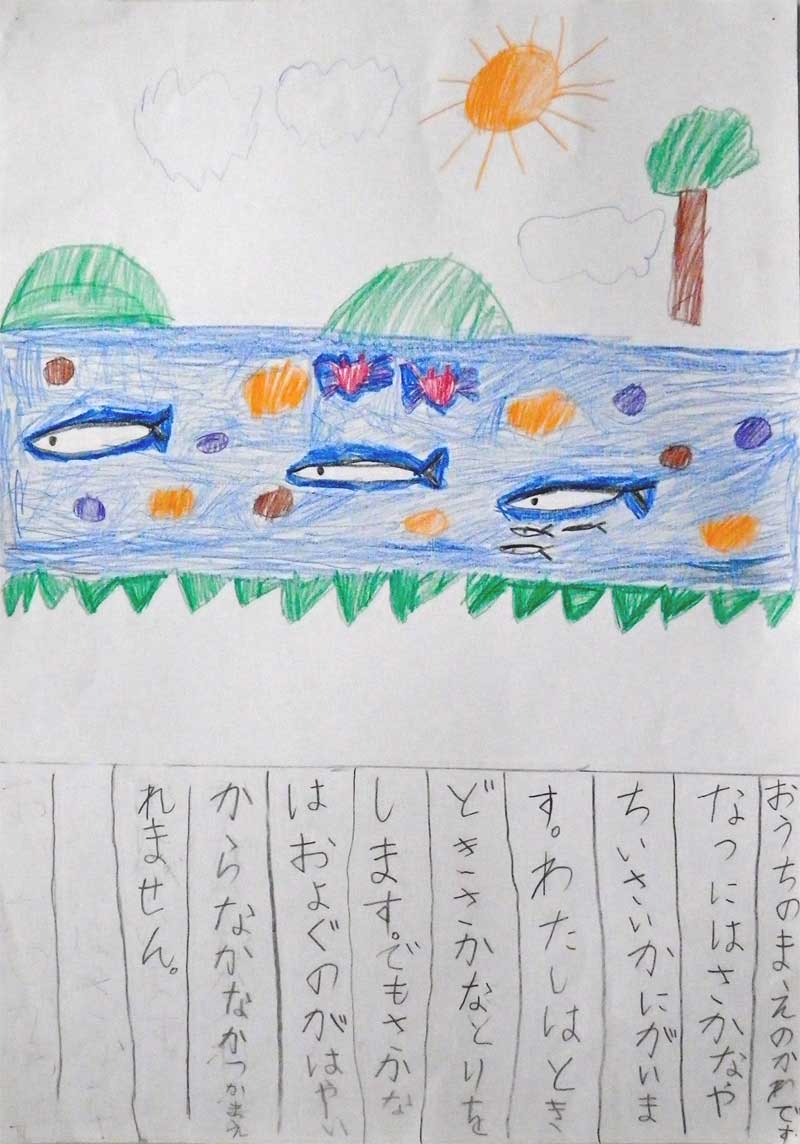 おうちのまえのかわです
なつにはさかなや
ちいさいかにがいま
す。わたしはとき
どきさかなとりを
します。でもさかな
はおよぐのがはやい
からなかなかつかまえ
れません。